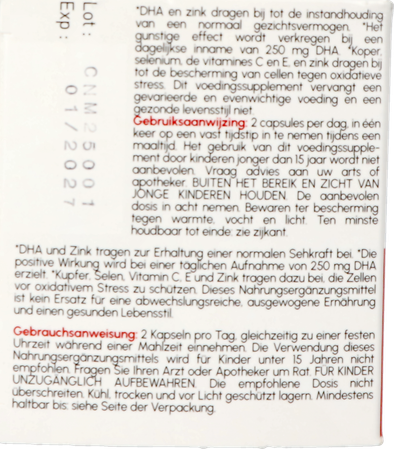 Lot : CNM25001
Exp : 01/2027
*DHA en zink dragen bij tot de instandhouding
van een normaal gezichtsvermogen. *Het
gunstige effect wordt verkregen bij een
dagelijkse inname van 250 mg DHA. *Koper,
selenium, de vitamines C en E, en zink dragen bij
tot de bescherming van cellen tegen oxidatieve
stress. Dit voedingssupplement vervangt een
gevarieerde en evenwichtige voeding en een
gezonde levensstijl niet.
Gebruiksaanwijzing: 2 capsules per dag, in één
keer op een vast tijdstip in te nemen tijdens een
maaltijd. Het gebruik van dit voedingssupple-
ment door kinderen jonger dan 15 jaar wordt niet
aanbevolen. Vraag advies aan uw arts of
apotheker. BUITEN HET BEREIK EN ZICHT VAN
JONGE KINDEREN HOUDEN. De aanbevolen
dosis in acht nemen. Bewaren ter bescherming
tegen warmte, vocht en licht. Ten minste
houdbaar tot einde: zie zijkant.
*DHA und Zink tragen zur Erhaltung einer normalen Sehkraft bei. *Die
positive Wirkung wird bei einer täglichen Aufnahme von 250 mg DHA
erzielt. *Kupfer, Selen, Vitamin C, E und Zink tragen dazu bei, die Zellen
vor oxidativem Stress zu schützen. Dieses Nahrungsergänzungsmittel
ist kein Ersatz für eine abwechslungsreiche, ausgewogene Ernährung
und einen gesunden Lebensstil.
Gebrauchsanweisung: 2 Kapseln pro Tag, gleichzeitig zu einer festen
Uhrzeit während einer Mahlzeit einnehmen. Die Verwendung dieses
Nahrungsergänzungsmittels wird für Kinder unter 15 Jahren nicht
empfohlen. Fragen Sie Ihren Arzt oder Apotheker um Rat. FÜR KINDER
UNZUGÄNGLICH AUFBEWAHREN. Die empfohlene Dosis nicht
überschreiten. Kühl, trocken und vor Licht geschützt lagern. Mindestens
haltbar bis: siehe Seite der Verpackung.